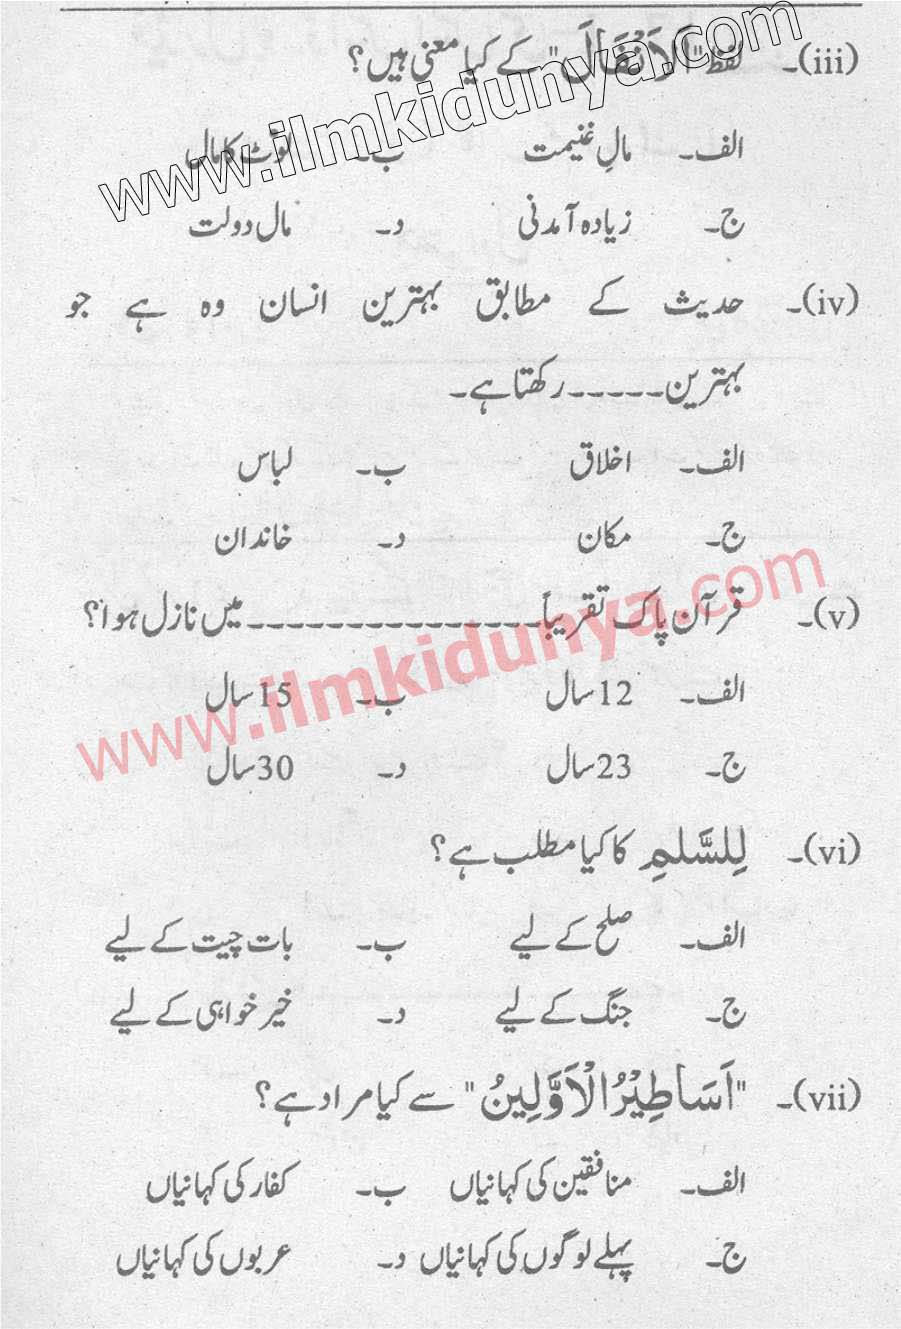 (iii)۔ لفظ "اَلْاَنْفَالَ" کے کیا معنی ہیں؟
الف۔ مالِ غنیمت ب۔ لوٹ کا مال
ج۔ زیادہ آمدنی د۔ مال دولت
(iv)۔ حدیث کے مطابق بہترین انسان وہ ہے جو
بہترین۔۔۔۔۔رکھتا ہے۔
الف۔ اخلاق ب۔ لباس
ج۔ مکان د۔ خاندان
(v)۔ قرآن پاک تقریباً۔۔۔۔۔۔۔۔۔۔۔۔۔۔۔میں نازل ہوا؟
الف۔ 12سال ب۔ 15سال
ج۔ 23سال د۔ 30سال
(vi)۔ لِلسَّلمِ کا کیا مطلب ہے؟
الف۔ صلح کے لیے ب۔ بات چیت کے لیے
ج۔ جنگ کے لیے د۔ خیر خواہی کے لیے
(vii)۔ "اَسَاطِیْرُ الْاَوَّلِینُ" سے کیا مراد ہے؟
الف۔ منافقین کی کہانیاں ب۔ کفار کی کہانیاں
ج۔ پہلے لوگوں کی کہانیاں د۔ عربوں کی کہانیاں
www.ilmkidunya.com
www.ilmkidunya.com